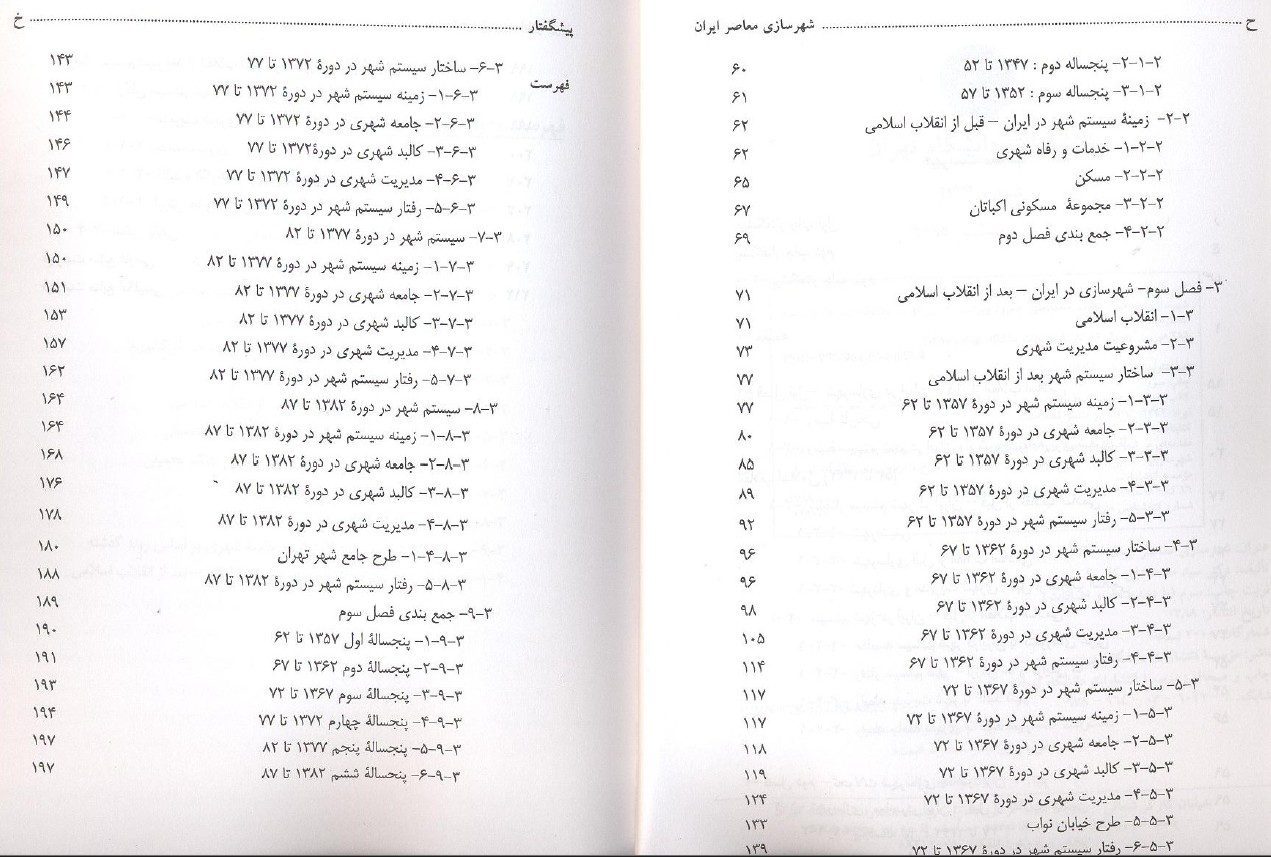 ح ........ شهرسازی معاصر ایران
۲-۱-۲- پنجساله دوم : ۱۳۴۷ تا ۵۲ ۶۰
۳-۱-۲- پنجساله سوم : ۱۳۵۲ تا ۵۷ ۶۱
۲-۲- زمینهٔ سیستم شهر در ایران – قبل از انقلاب اسلامی ۶۲
۱-۲-۲- خدمات و رفاه شهری ۶۲
۲-۲-۲- مسکن ۶۵
۳-۲-۲- مجموعهٔ مسکونی اکباتان ۶۷
۴-۲-۲- جمع بندی فصل دوم ۶۹
۳- فصل سوم- شهرسازی در ایران – بعد از انقلاب اسلامی ۷۱
۱-۳- انقلاب اسلامی ۷۱
۲-۳- مشروعیت مدیریت شهری ۷۳
۳-۳- ساختار سیستم شهر بعد از انقلاب اسلامی ۷۷
۱-۳-۳- زمینه سیستم شهر در دورهٔ ۱۳۵۷ تا ۶۲ ۷۷
۲-۳-۳- جامعه شهری در دورهٔ ۱۳۵۷ تا ۶۲ ۸۰
۳-۳-۳- کالبد شهری در دورهٔ ۱۳۵۷ تا ۶۲ ۸۵
۴-۳-۳- مدیریت شهری در دورهٔ ۱۳۵۷ تا ۶۲ ۸۹
۵-۳-۳- رفتار سیستم شهر در دورهٔ ۱۳۵۷ تا ۶۲ ۹۲
۴-۳- ساختار سیستم شهر در دورهٔ ۱۳۶۲ تا ۶۷ ۹۶
۱-۴-۳- جامعه شهری در دورهٔ ۱۳۶۲ تا ۶۷ ۹۶
۲-۴-۳- کالبد شهری در دورهٔ ۱۳۶۲ تا ۶۷ ۹۸
۳-۴-۳- مدیریت شهری در دورهٔ ۱۳۶۲ تا ۶۷ ۱۰۵
۴-۴-۳- رفتار سیستم شهر در دورهٔ ۱۳۶۲ تا ۶۷ ۱۱۴
۵-۳- ساختار سیستم شهر در دورهٔ ۱۳۶۷ تا ۷۲ ۱۱۷
۱-۵-۳- زمینه سیستم شهر در دورهٔ ۱۳۶۷ تا ۷۲ ۱۱۷
۲-۵-۳- جامعه شهری در دورهٔ ۱۳۶۷ تا ۷۲ ۱۱۸
۳-۵-۳- کالبد شهری در دورهٔ ۱۳۶۷ تا ۷۲ ۱۱۹
۴-۵-۳- مدیریت شهری در دورهٔ ۱۳۶۷ تا ۷۲ ۱۲۴
۵-۵-۳- طرح خیابان نواب ۱۳۳
۶-۵-۳- رفتار سیستم شهر در دورهٔ ۱۳۶۷ تا ۷۲ ۱۳۹
پیشگفتار ........ خ
فهرست
۶-۳- ساختار سیستم شهر در دورهٔ ۱۳۷۲ تا ۷۷ ۱۴۳
۱-۶-۳- زمینه سیستم شهر در دورهٔ ۱۳۷۲ تا ۷۷ ۱۴۳
۲-۶-۳- جامعه شهری در دورهٔ ۱۳۷۲ تا ۷۷ ۱۴۴
۳-۶-۳- کالبد شهری در دورهٔ۱۳۷۲ تا ۷۷ ۱۴۶
۴-۶-۳- مدیریت شهری در دورهٔ ۱۳۷۲ تا ۷۷ ۱۴۷
۵-۶-۳- رفتار سیستم شهر در دورهٔ ۱۳۷۲ تا ۷۷ ۱۴۹
۷-۳- سیستم شهر در دورهٔ ۱۳۷۷ تا ۸۲ ۱۵۰
۱-۷-۳- زمینه سیستم شهر در دورهٔ ۱۳۷۷ تا ۸۲ ۱۵۰
۲-۷-۳- جامعه شهری در دورهٔ ۱۳۷۷ تا ۸۲ ۱۵۱
۳-۷-۳- کالبد شهری در دورهٔ ۱۳۷۷ تا ۸۲ ۱۵۳
۴-۷-۳- مدیریت شهری در دورهٔ ۱۳۷۷ تا ۸۲ ۱۵۷
۵-۷-۳- رفتار سیستم شهر در دورهٔ ۱۳۷۷ تا ۸۲ ۱۶۲
۸-۳- سیستم شهر در دورهٔ ۱۳۸۲ تا ۸۷ ۱۶۴
۱-۸-۳- زمینه سیستم شهر در دورهٔ ۱۳۸۲ تا ۸۷ ۱۶۴
۲-۸-۳- جامعه شهری در دورهٔ ۱۳۸۲ تا ۸۷ ۱۶۸
۳-۸-۳- کالبد شهری در دورهٔ ۱۳۸۲ تا ۸۷ ۱۷۶
۴-۸-۳- مدیریت شهری در دورهٔ ۱۳۸۲ تا ۸۷ ۱۷۸
۱-۴-۸-۳- طرح جامع شهر تهران ۱۸۰
۵-۸-۳- رفتار سیستم شهر در دورهٔ ۱۳۸۲ تا ۸۷ ۱۸۸
۹-۳- جمع بندی فصل سوم ۱۸۹
۱-۹-۳- پنجسالهٔ اول ۱۳۵۷ تا ۶۲ ۱۹۰
۲-۹-۳- پنجسالهٔ دوم ۱۳۶۲ تا ۶۷ ۱۹۱
۳-۹-۳- پنجسالهٔ سوم ۱۳۶۷ تا ۷۲ ۱۹۳
۴-۹-۳- پنجسالهٔ چهارم ۱۳۷۲ تا ۷۷ ۱۹۴
۵-۹-۳- پنجسالهٔ پنجم ۱۳۷۷ تا ۸۲ ۱۹۷
۶-۹-۳- پنجسالهٔ ششم ۱۳۸۲ تا ۸۷ ۱۹۷